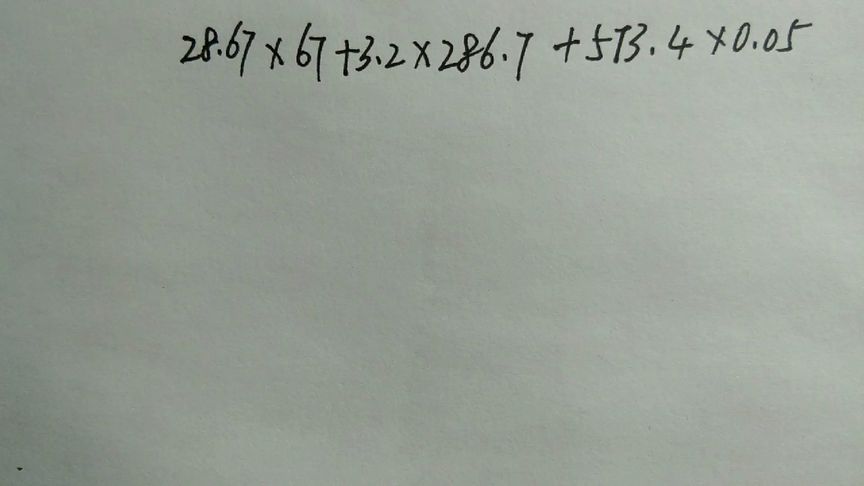 28.67×67+3.2×286.7+573.4×0.05